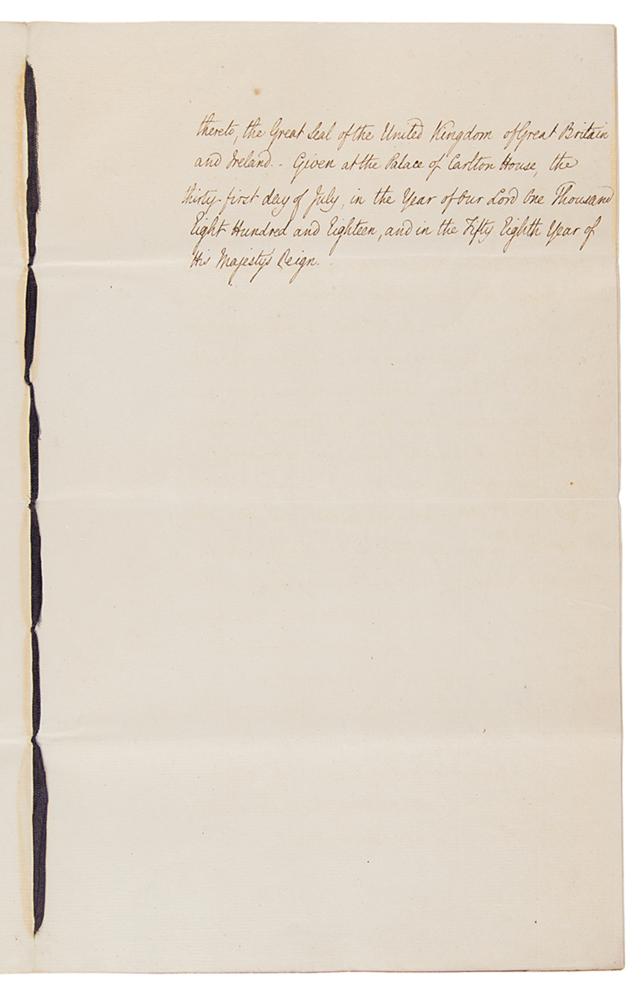 thereto, the Great Seal of the United Kingdom of Great Britain
and Ireland - Given at the Palace of Carlton House, the
thirty-first day of July, in the Year of Our Lord One Thousand
Eight Hundred and Eighteen, and in the Fifty Eighth Year of
His Majestys Reign.